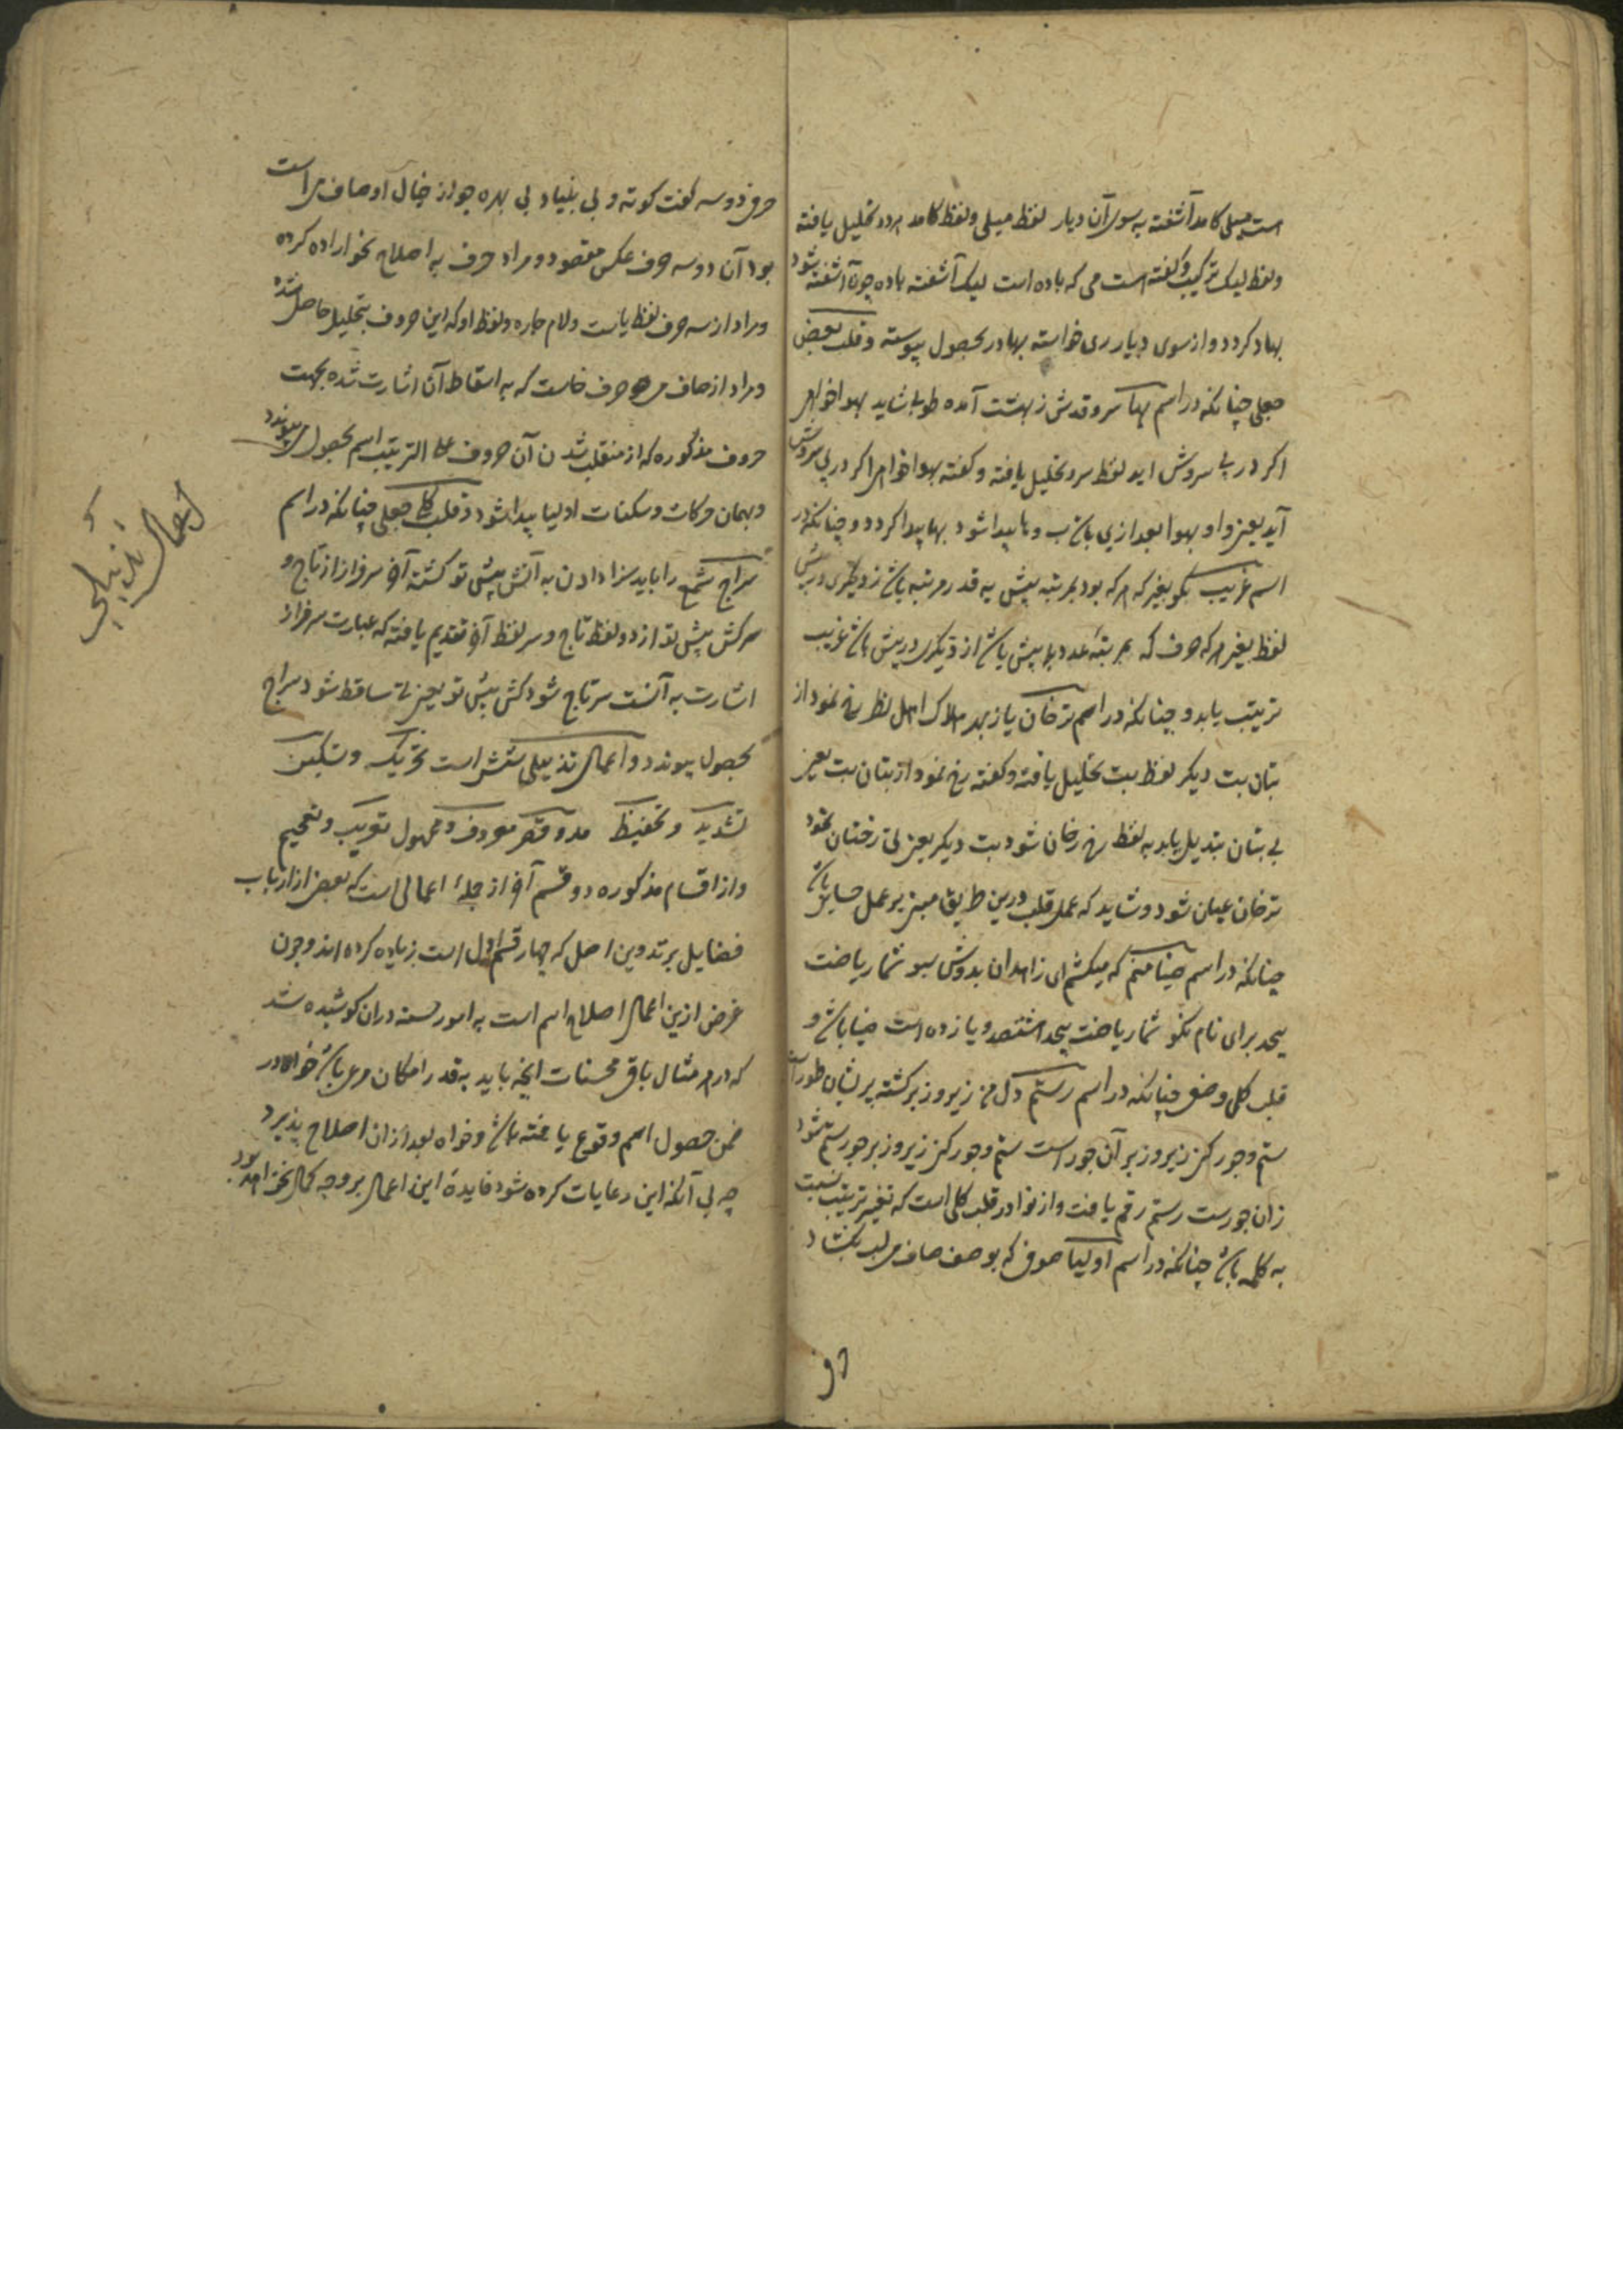 است میلی کامد آشفته به سوی آن دیار لفظ میلی و لفظ کامد هردو تحلیل یافته
ولفظ لیک ترکیب و کفته است می که باده است لیک آشفته باده چون آشفته شود
بهاد کردد و از سوی دیار ری خواسته بهادر بحصول پیوسته و قلب بعض
جعلی چنانکه در اسم بها سرو قدش ز بهشت آمده طوبی شاید بهواخواهی
اکر در پی سروش آید لفظ سرو تحلیل یافته و کفته بهواخواهی اکر در پی سروش
آید یعنی واو بهوا بعد از بی باشد و ها پیدا شود بها پیدا کردد و چنانکه در
اسم غریب بکو بغیر که هر که بود بمرتبه پیش به قدر مرتبه باشد ز دیکری در پیش
لفظ بغیر هر که حرف که بمرتبه عدد بیش باشد از دیکری در پیش باشد غریب
ترتیب یابد و چنانکه در اسم ترخان یاز بهر هلاک اهل نظر رخ نمود از
بتان بت دیکر لفظ بت تحلیل یافته و کفته رخ نمود از بتان بت یعنی
بی بتان تبدیل یابد به لفظ رخ رخان شود بت دیکر یعنی تی رختان نمود
ترخان عیان شود و شاید که عمل قلب درین طریق مبنی بر عمل حسابی باشد
چنانکه در اسم ضیا منم که میکشم ای زاهدان بدوش سبو شما ریاضت
بیحد برای نام نکو شمار یاضت بیحد هشتصد و یازده است ضیا باشد و
قلب کلی وضعی چنانکه در اسم رستم دل من زیر و زبر کشته پریشان طور است
ستم و جور کن زیر و زبر آن جور است ستم و جور کن زیر و زبر جور ستم شود
زان جورست رستم رقم یافت و از نوادر قلب کلی است که تغییر ترتیب نسبت
به کلمه باشد چنانکه در اسم اولیا صوفی که بوصف صاف می لب بکشاد
حرفی دو سه کفت کوته و بی بنیاد بی بهره چو از خیال اوصاف می است
بود آن دو سه حرف عکس مقصود و مراد حرف به اصلاح نحو اراده کرده
و مراد از سه حرف لفظ یاست و لام جاره و لفظ او که این حروف بتحلیل حاصل شده
و مراد از صاف می حرف خاست که به اسقاط آن اشارت شده بجهت
حروف مذکوره که از منقلب شدن آن حروف علی الترتیب اسم بحصول می پیوندد
و بهمان حرکات و سکنات اولیا پیدا شود و قلب کلی جعلی چنانکه در اسم
سراج شمع را باید سزا دادن به آتش پیش تو کشته آخر سرفراز از تاج و
سرکش پیش تو از دو لفظ تاج و سر لفظ آخر تقدیم یافته که عبارت سرفراز
اشارت به آنست سرتاج شود کش پیش تو یعنی تا ساقط شود سراج
بحصول پیوندد و اعمال تذییلی شش است تحریک و تسکین
تشدید و تخفیف مد و قصر معروف و مجهول تعریب و تعجیم
و از اقسام مذکوره دو قسم آخر از جمله اعمالی است که بعضی از ارباب
فضایل بر تدوین اصل که چهار قسم اول است زیاده کرده اند و چون
غرض ازین اعمال اصلاح اسم است به امور حسنه در آن کوشیده شد
که در هر مثال باقی محسنات آنچه باید به قدر امکان مرعی باشد خواه در
ضمن حصول اسم وقوع یافته باشد و خواه بعد از آن اصلاح پذیرد
چه بی آنکه این رعایات کرده شود فایده این اعمال بر وجه کمال نخواهد بود
اعمال تذییلی